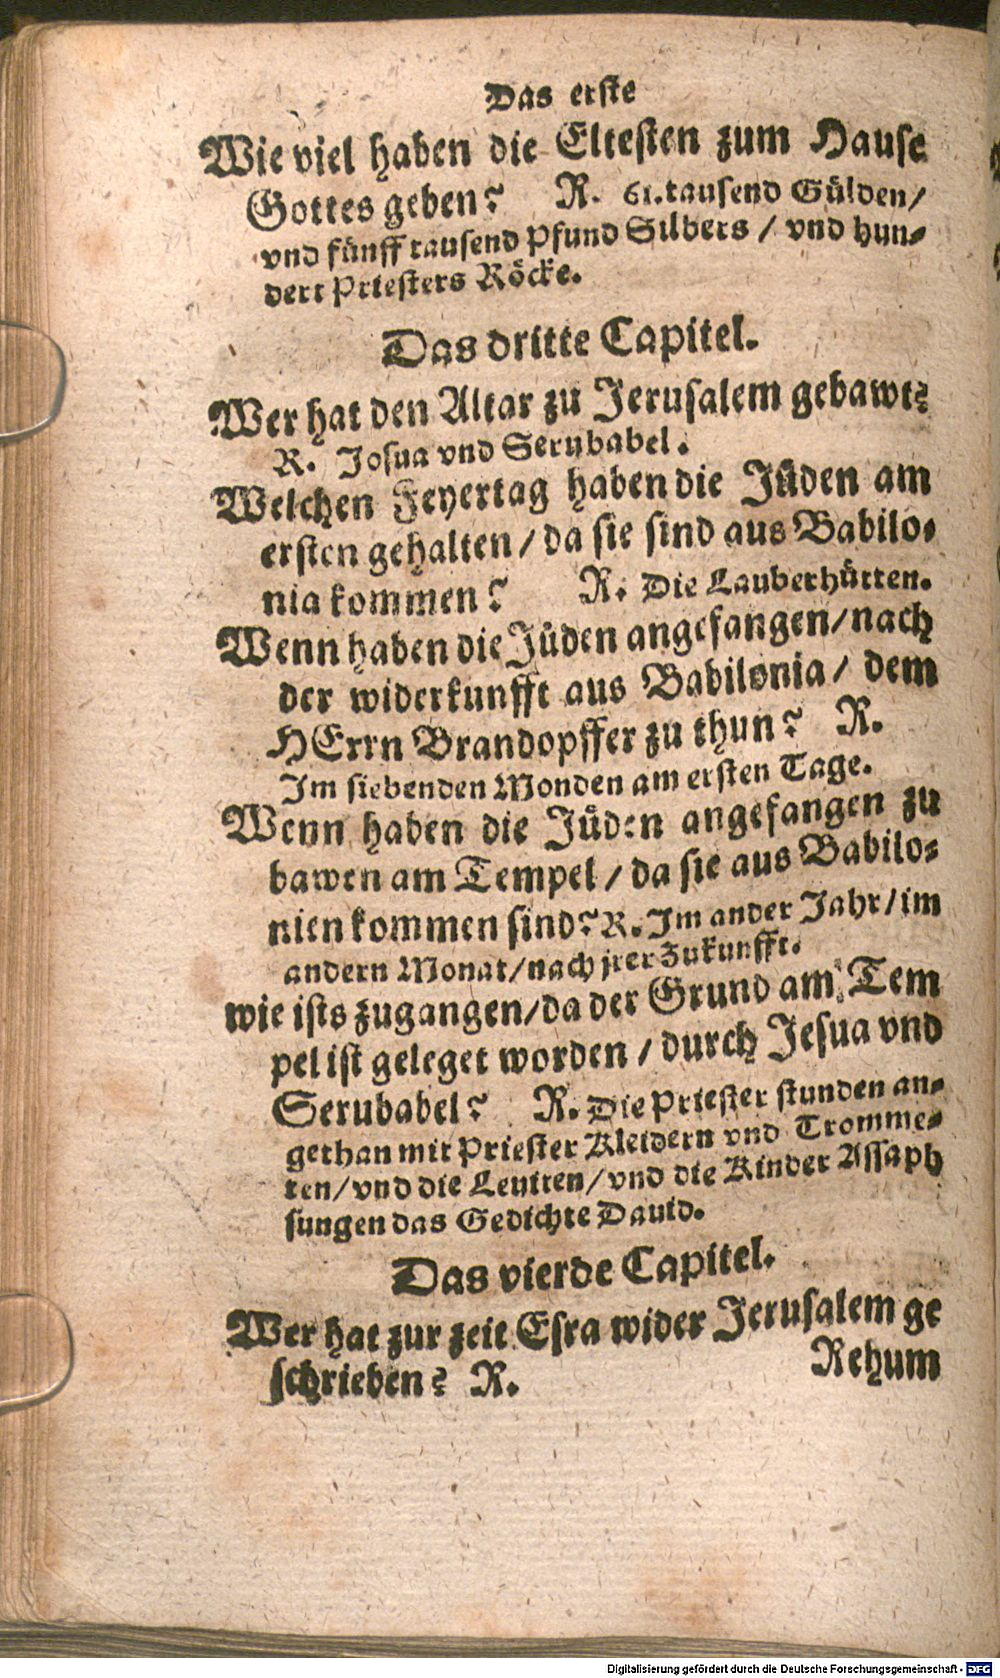 Das erste
Wie viel haben die Eltesten zum Hause
Gottes geben? R. 61. tausend Gülden/
vnd fünff tausend Pfund Silbers / vnd hun-
dert Priesters Röcke.
Das dritte Capitel.
Wer hat den Altar zu Jerusalem gebawt?
R. Josua vnd Serubabel.
Welchen Feyertag haben die Jüden am
ersten gehalten / da sie sind aus Babilo-
nia kommen? R. Die Lauberhütten.
Wenn haben die Jüden angefangen/ nach
der widerkunfft aus Babilonia / dem
HErrn Brandopffer zu thun? R.
Im siebenden Monden am ersten Tage.
Wenn haben die Jüden angefangen zu
bawen am Tempel / da sie aus Babilo-
nien kommen sind? R. Im ander Jahr/ im
andern Monat/ nach jrer Zukunfft.
wie ists zugangen/ da der Grund am Tem
pel ist geleget worden / durch Jesua vnd
Serubabel? R. Die Priester stunden an-
gethan mit Priester Kleidern vnd Tromme-
ten/ vnd die Leuiten/ vnd die Kinder Assaph
sungen das Gedichte Dauid.
Das vierde Capitel.
Wer hat zur zeit Esra wider Jerusalem ge
schrieben? R. Rehum
Digitalisierung gefördert durch die Deutsche Forschungsgemeinschaft - DFG